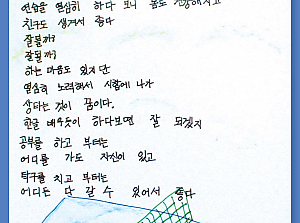 연습을 열심히 하다 보니 몸도 건강해지고
친구도 생겨서 좋다
잘될까?
잘될까?
하는 마음도 있지만
열심히 노력해서 시합에 나가
상타는 것이 꿈이다.
한글 배우듯이 하다보면 잘 되겠지
공부를 하고 부터는
어디를 가도 자신이 있고
탁구를 치고 부터는
어디든 다 갈 수 있어서 좋다